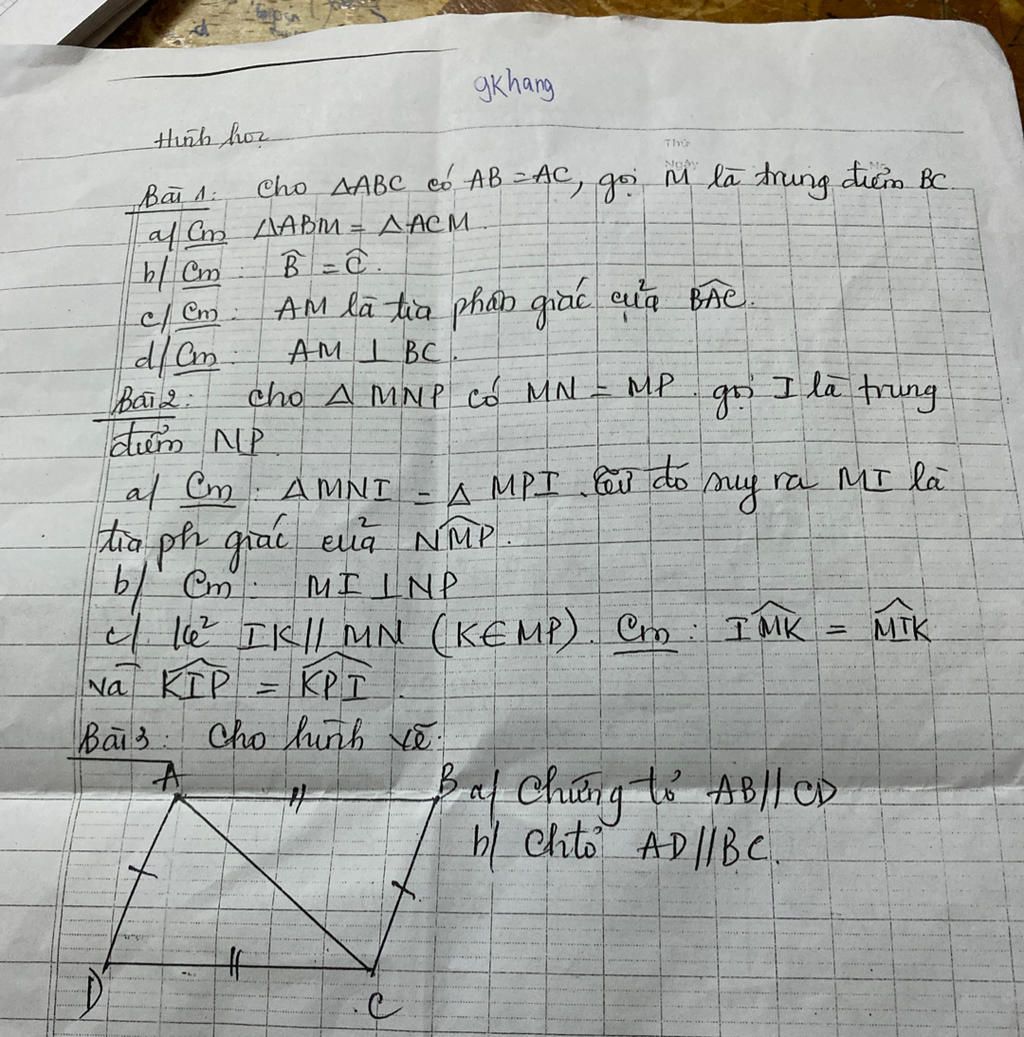 gkhang
Hình học
Thứ
Ngày
Bài 1: Cho ΔABC có AB = AC, gọi M là trung điểm BC.
a/ Cm ΔABM = ΔACM.
b/ Cm : B̂ = Ĉ.
c/ Cm : AM là tia phân giác của BÂC.
d/ Cm : AM ⊥ BC.
Bài 2: Cho Δ MNP có MN = MP. gọi I là trung
điểm NP
a/ Cm : ΔMNI = Δ MPI. Từ đó suy ra MI là
tia ph giác của NM̂P.
b/ Cm : MI ⊥ NP
c/ kẻ IK // MN (K ∈ MP). Cm : IM̂K = MÎK
và KÎP = KP̂I.
Bài 3: Cho hình vẽ:
A B a/ Chứng tỏ AB // CD
b/ Chtỏ AD // BC.
D C